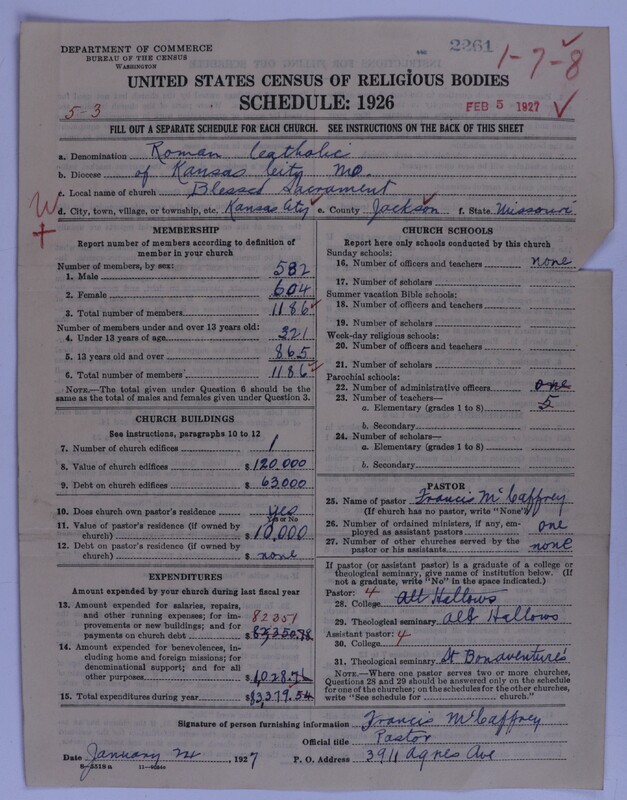 DEPARTMENT OF COMMERCE
BUREAU OF THE CENSUS
WASHINGTON
2261
1-7-8
UNITED STATES CENSUS OF RELIGIOUS BODIES
SCHEDULE: 1926
5-3
FEB 5 1927
FILL OUT A SEPARATE SCHEDULE FOR EACH CHURCH. SEE INSTRUCTIONS ON THE BACK OF THIS SHEET
a. Denomination Roman Catholic
b. Diocese of Kansas City Mo.
c. Local name of church Blessed Sacrament
d. City, town, village, or township, etc. Kansas City e. County Jackson f. State Missouri
MEMBERSHIP
Report number of members according to definition of
member in your church
Number of members, by sex:
1. Male 582
2. Female 604
3. Total number of members 1186
Number of members under and over 13 years old:
4. Under 13 years of age 321
5. 13 years old and over 865
6. Total number of members 1186
NOTE.—The total given under Question 6 should be
same as the total of males and females given under Question 3.
CHURCH BUILDINGS
See instructions, paragraphs 10 to 12
7. Number of church edifices 1
8. Value of church edifices $120,000
9. Debt on church edifices $ 63000
10. Does church own pastor's residence yes
Yes or No
11. Value of pastor's residence (if owned by
church) $10,000
12. Debt on pastor's residence (if owned by
church) $ none
EXPENDITURES
Amount expended by your church during last fiscal year
13. Amount expended for salaries, repairs,
and other running expenses; for im-
provements or new buildings; and for
payments on church debt 82351 $82,350.78
14. Amount expended for benevolences, in-
cluding home and foreign missions; for
denominational support; and for all
other purposes $1,028.76
15. Total expenditures during year $83,379.54
CHURCH SCHOOLS
Report here only schools conducted by this church
Sunday schools:
16. Number of officers and teachers none
17. Number of scholars
Summer vacation Bible schools:
18. Number of officers and teachers
19. Number of scholars
Week-day religious schools:
20. Number of officers and teachers
21. Number of scholars
Parochial schools:
22. Number of administrative officers one
23. Number of teachers—
a. Elementary (grades 1 to 8) 5
b. Secondary
24. Number of scholars—
a. Elementary (grades 1 to 8)
b. Secondary
PASTOR
25. Name of pastor Francis McCaffrey
(If church has no pastor, write "None")
26. Number of ordained ministers, if any, em-
ployed as assistant pastors one
27. Number of other churches served by the
pastor or his assistants none
If pastor (or assistant pastor) is a graduate of a college or
theological seminary, give name of institution below. (If
not a graduate, write "No" in the space indicated.)
Pastor: 4
28. College All Hallows
29. Theological seminary All Hallows
Assistant pastor: 4
30. College
31. Theological seminary St Bonaventure's
NOTE.—Where one pastor serves two or more churches,
Questions 28 and 29 should be answered only on the schedule
for one of the churches; on the schedules for the other churches,
write "See schedule for church."
Signature of person furnishing information Francis McCaffrey
Official title Pastor
Date January 24, 1927 P. O. Address 3911 Agnes Ave